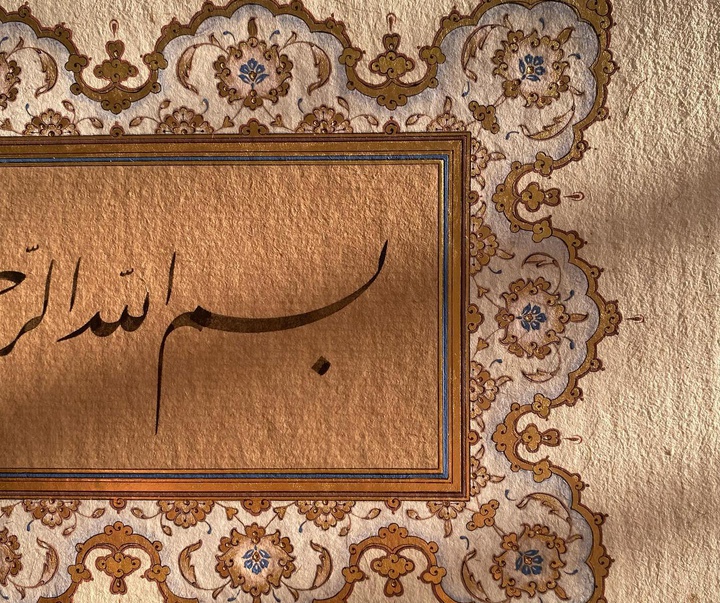 بسم الله الرّح